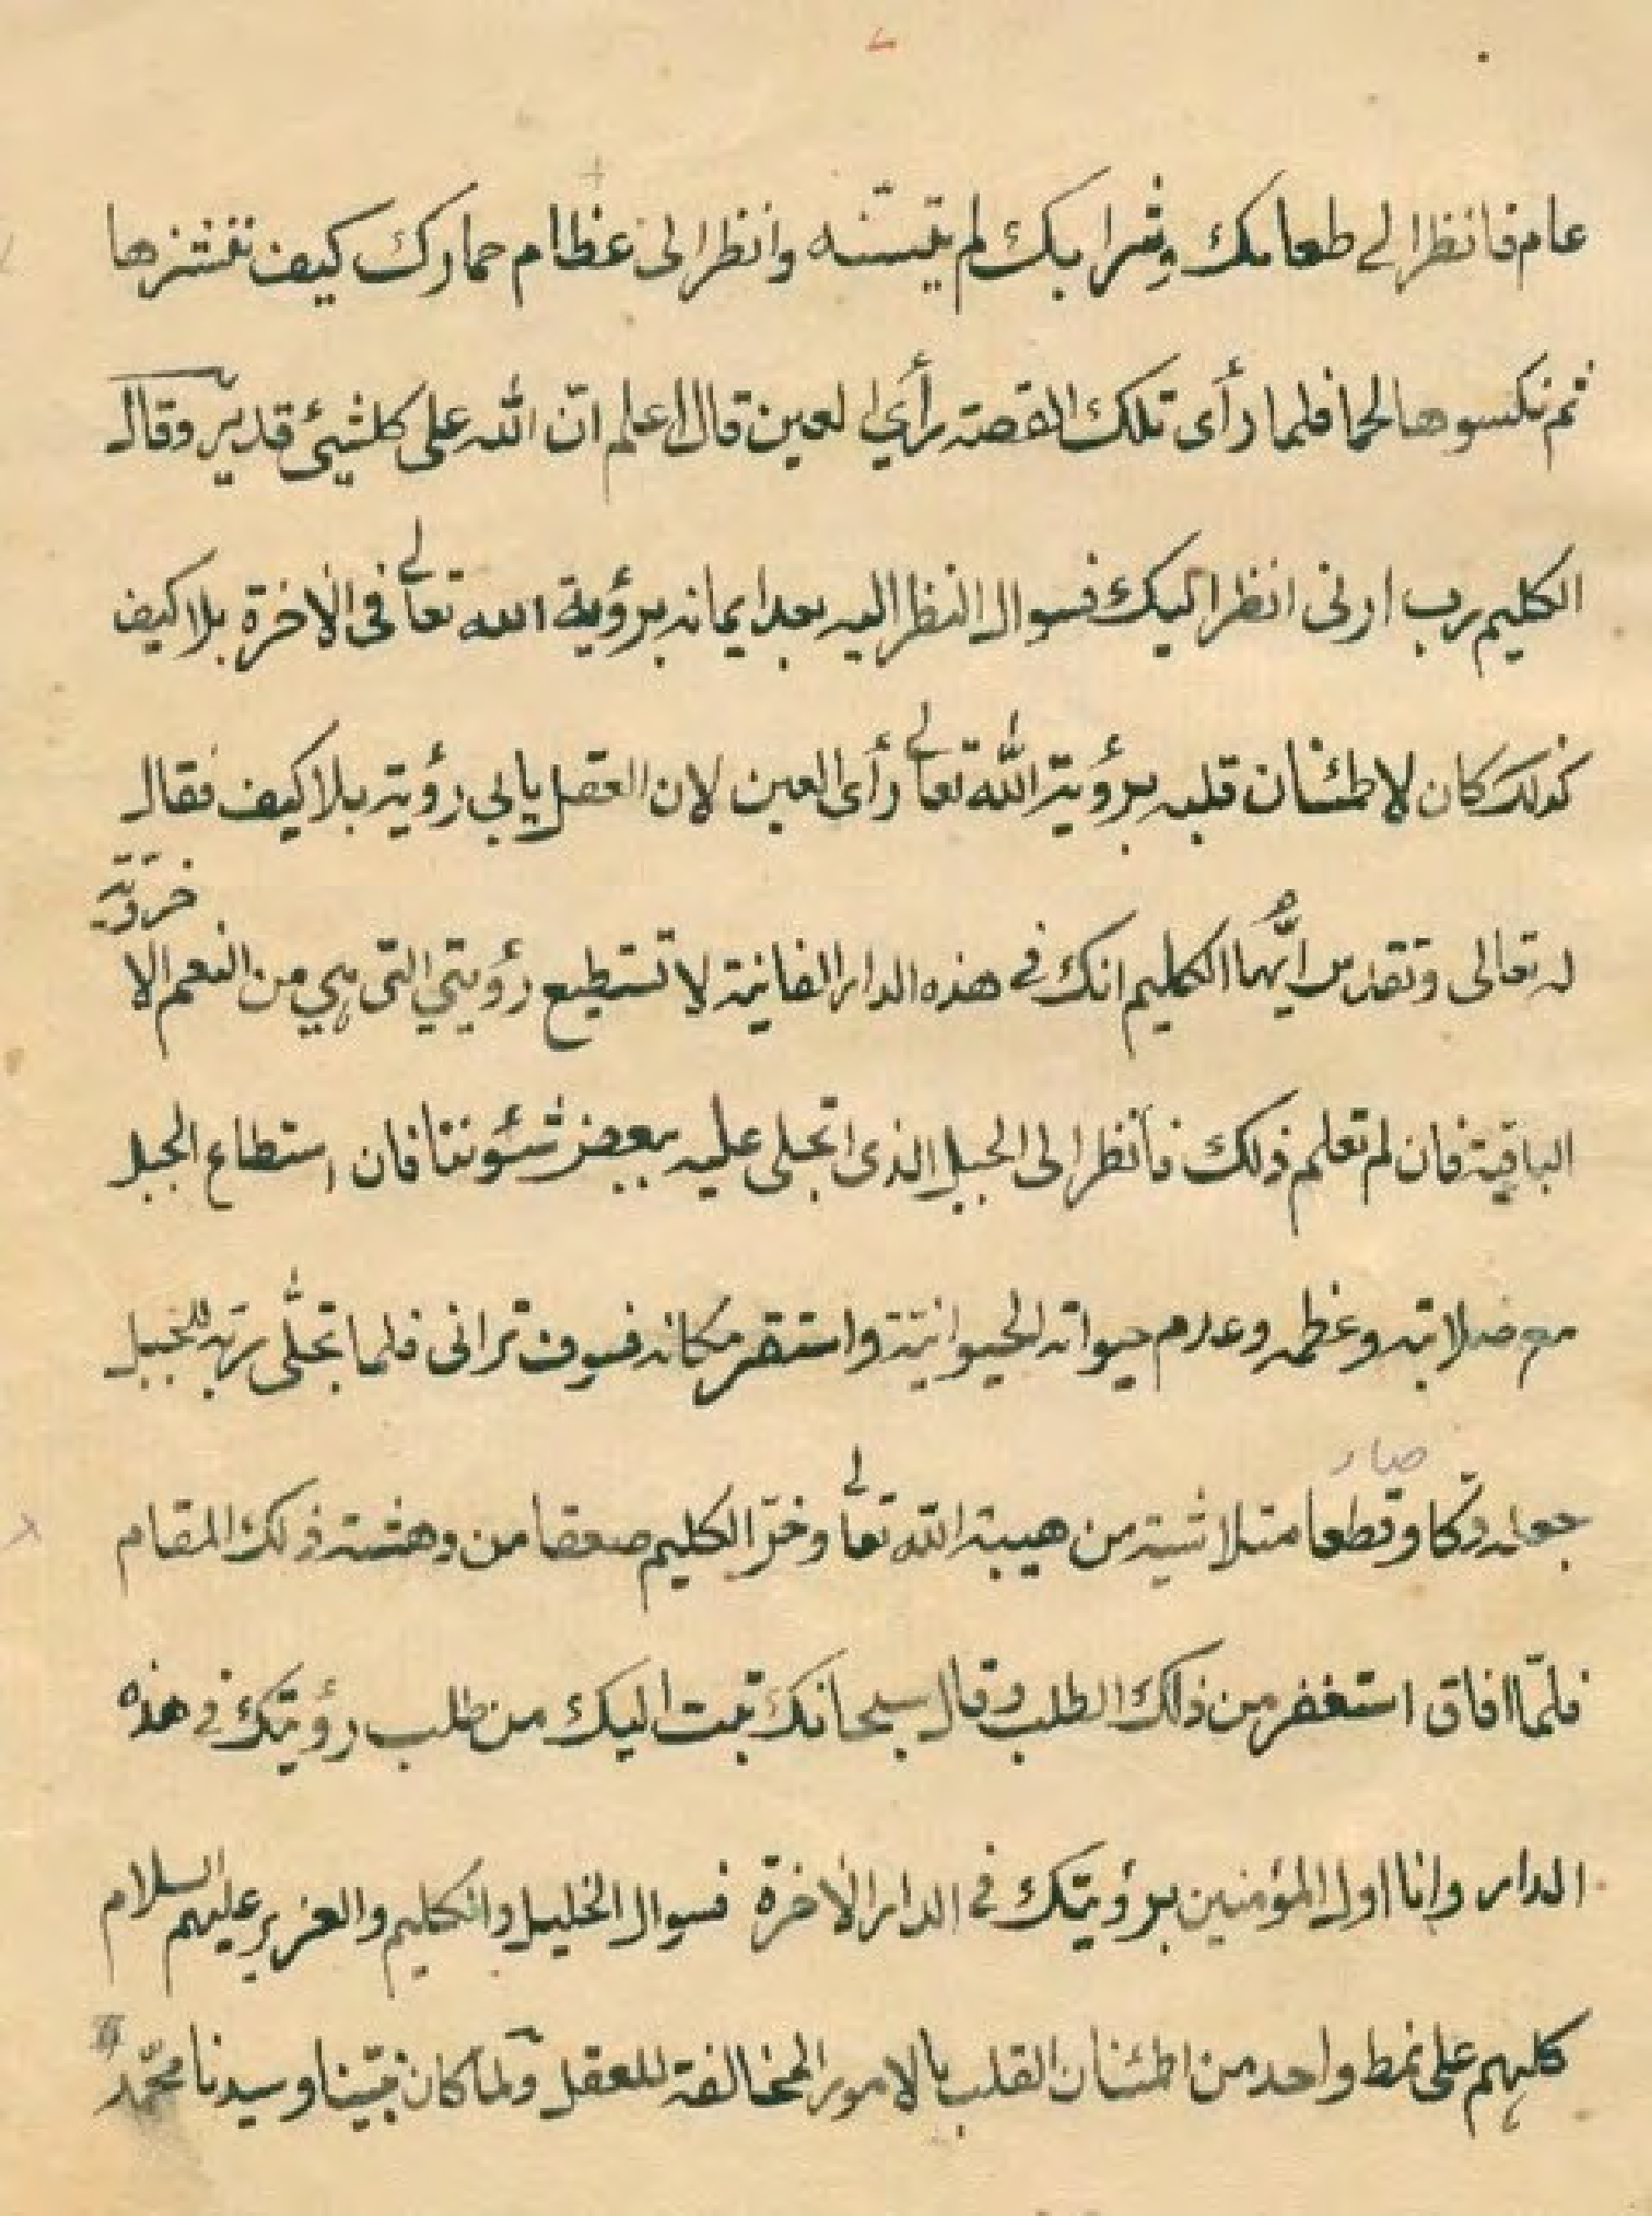 عام فانظر الے طعامك وشرابك لم يتسنّه وانظر الى عظام حمارك كيف ننشزها
ثم نكسوها لحما فلما رأى تلك القصة رأي العين قال اعلم انّ الله على كلشيئ قدير وقال
الكليم رب ارنى انظر اليك فسوال النظر اليه بعد ايمانه برؤية الله تعالے فى الاخرة بلا كيف
كذلك كان لاطمئنان قلبه برؤية الله تعالے رأى العين لان العقل يابي رؤية بلا كيف فقال
له تعالى وتقدس ايّها الكليم انك في هذه الدار الفانية لا تستطيع رؤيتي التى هي من النعم الاخرويّة
الباقية فان لم تعلم ذلك فانظر الى الجبل الذى اتجلى عليه ببعض شئوننا فان استطاع الجبل
مع صلابته وعظمه وعدم حيواته الحيوانيّة واستقر مكانه فسوف ترانى فلما تجلّى ربّه للجبل
صار
جعله دكّا وقطعا متلاشية من هيبة الله تعالے وخرّ الكليم صعقا من دهشة ذلك المقام
فلمّا افاق استغفر من ذلك الطلب وقال سبحانك تبت اليك من طلب رؤيتك في هذه
الدار وانا اول المؤمنين برؤيتك في الدار الاخرة فسوال الخليل والكليم والعزير عليهم السلام
كلهم على نمط واحد من اطمئنان القلب بالامور المخالفة للعقل ولما كان نبيّنا وسيدنا محمّد